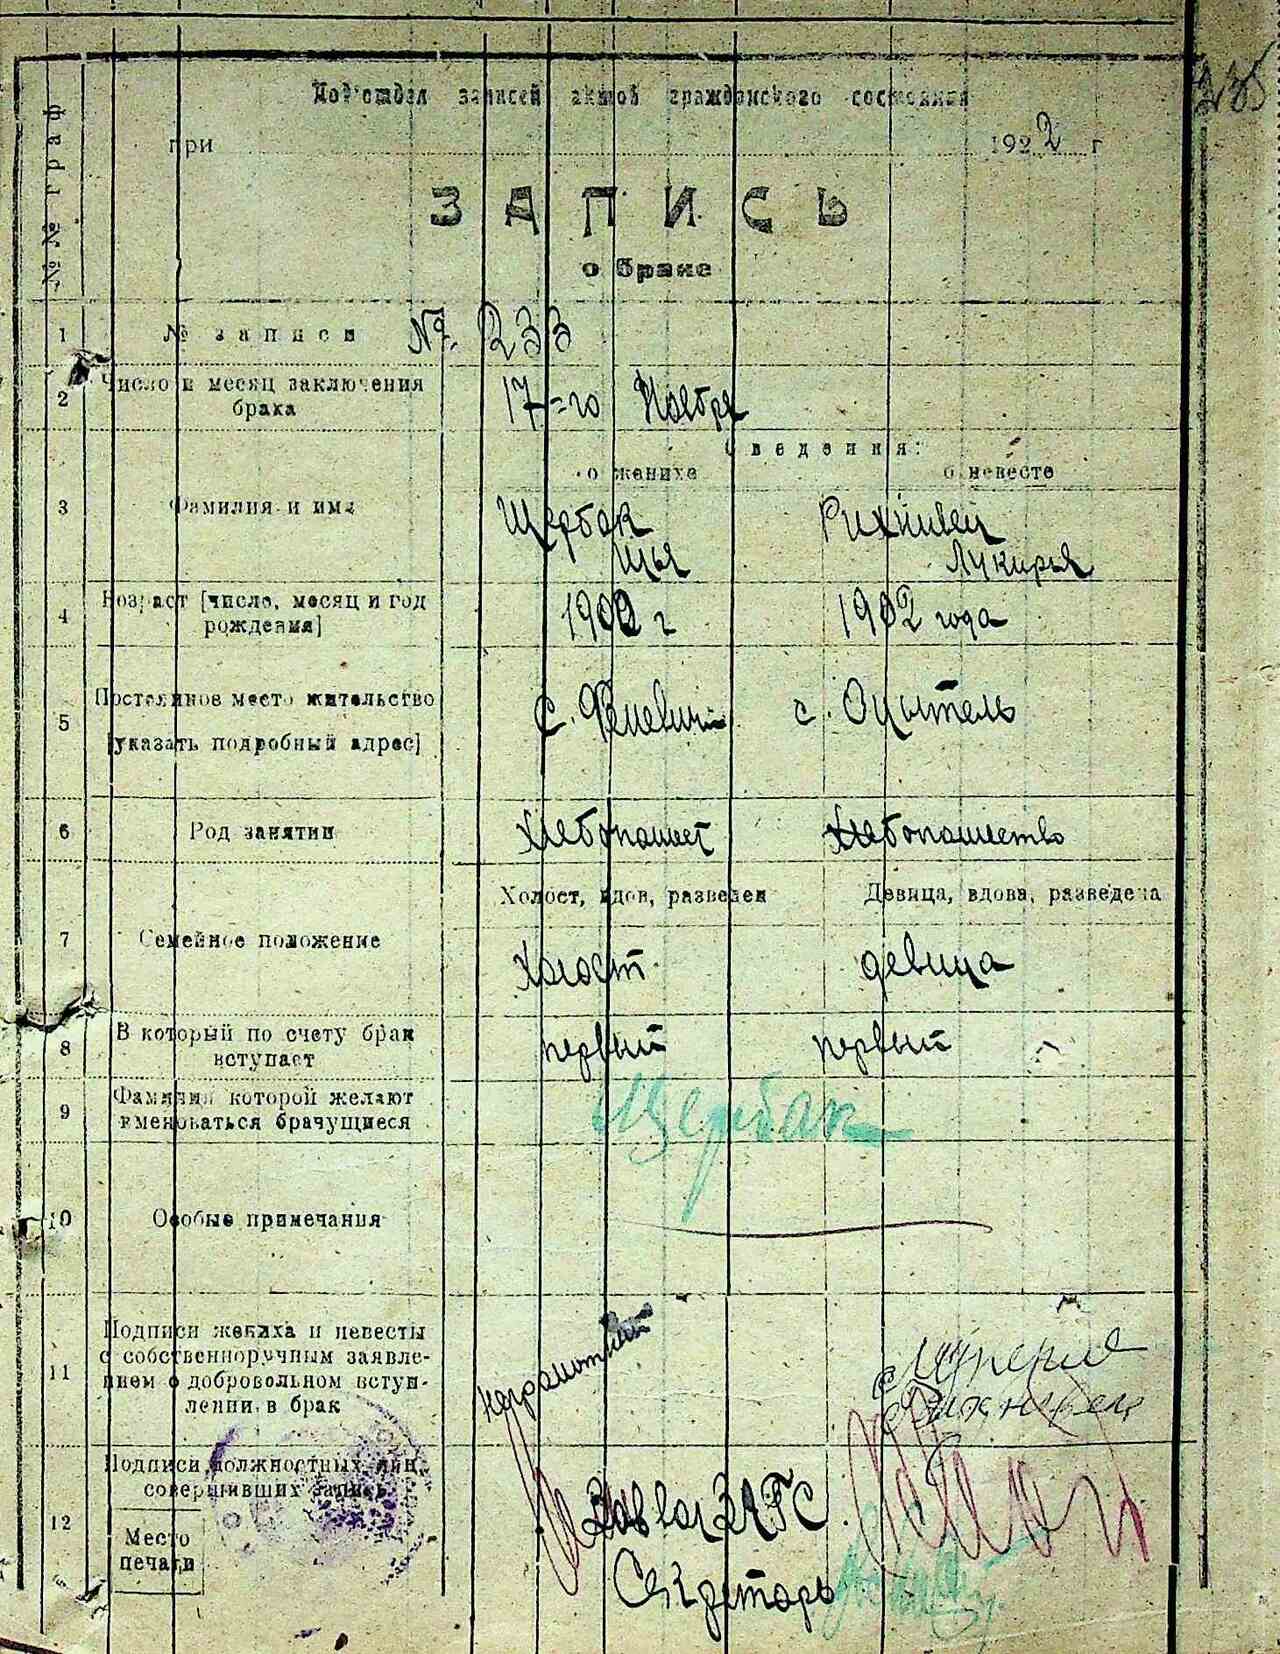 235
Под'отдел записей актов гражданского состояния
при 1922 г
№№ граф
ЗАПИСЬ
о браке
1 № записи № 233
2 Число и месяц заключения брака 17=го Ноября
Сведения:
о женихе о невесте
3 Фамилия и имя Щербак Рихнивец
Илья Лукирья
4 Возраст [число, месяц и год рождения] 1902 г 1902 года
5 Постоянное место жительство с. с. Оцытель
[указать подробный адрес]
6 Род занятий Хлебопашест Хлебопашество
Холост, вдов, разведен Девица, вдова, разведена
7 Семейное положение Холост девица
8 В который по счету брак вступает первый первый
9 Фамилия которой желают именоваться брачущиеся Щербак
10 Особые примечания
11 Подписи жениха и невесты
с собственноручным заявле-
нием о добровольном вступ-
лении в брак
неграмотный
12 Подписи должностных лиц,
совершивших запись
ЗАГС
Секретарь
Место
печати